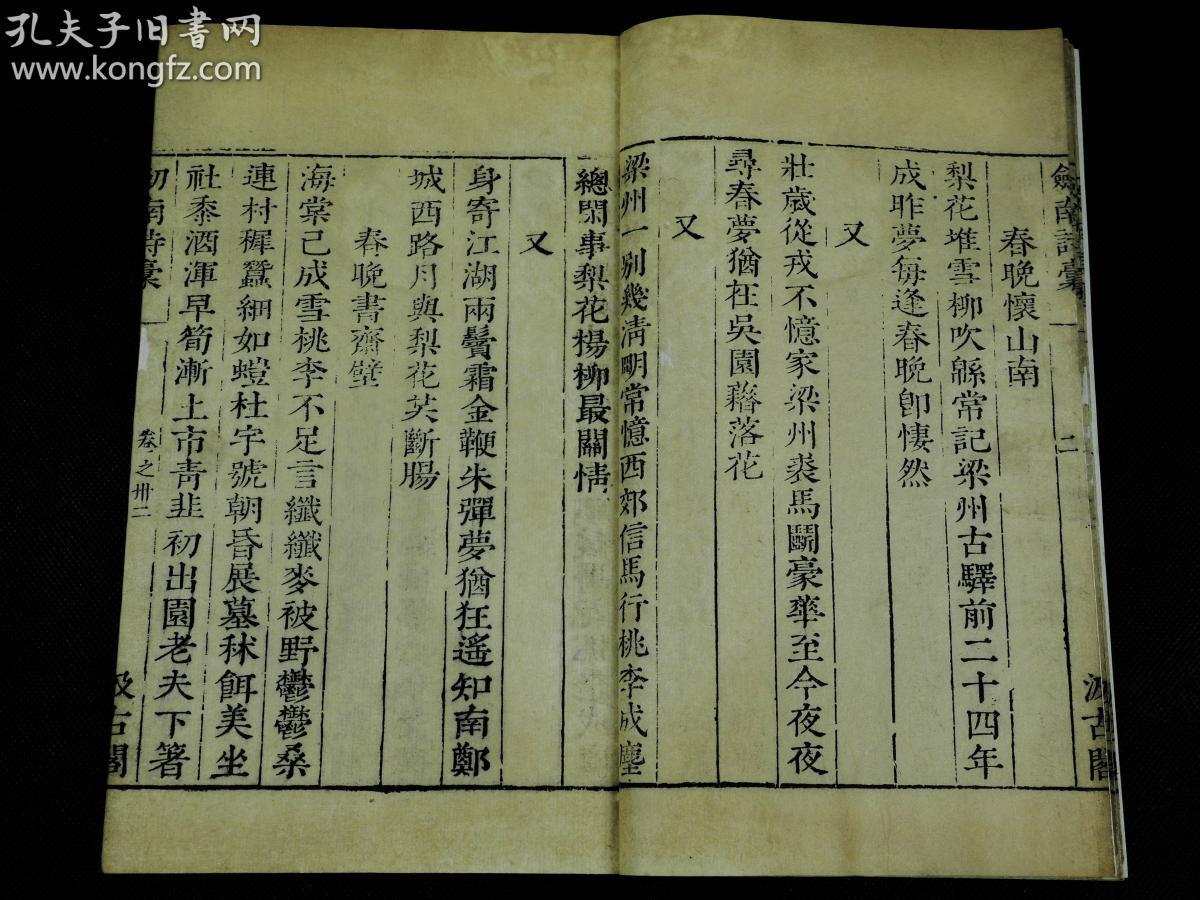 孔夫子旧书网
www.kongfz.com
劍南詩稾
二
汲古閣
春晚懷山南
梨花堆雪柳吹緜常記梁州古驛前二十四年
成昨夢每逢春晚卽悽然
又
壯歲從戎不憶家梁州裘馬鬭豪華至今夜夜
尋春夢猶在吳園藉落花
又
梁州一別幾淸明常憶西郊信馬行桃李成塵
總閑事梨花楊柳最關情
又
身寄江湖兩鬢霜金鞭朱彈夢猶狂遙知南鄭
城西路月與梨花共斷腸
春晚書齋壁
海棠已成雪桃李不足言纖纖麥被野鬱鬱桑
連村穉蠶細如螘杜宇號朝昏展墓秫餌美坐
社黍酒渾早筍漸上市靑韭初出園老夫下箸
劍南詩稾
卷之卅二
汲古閣